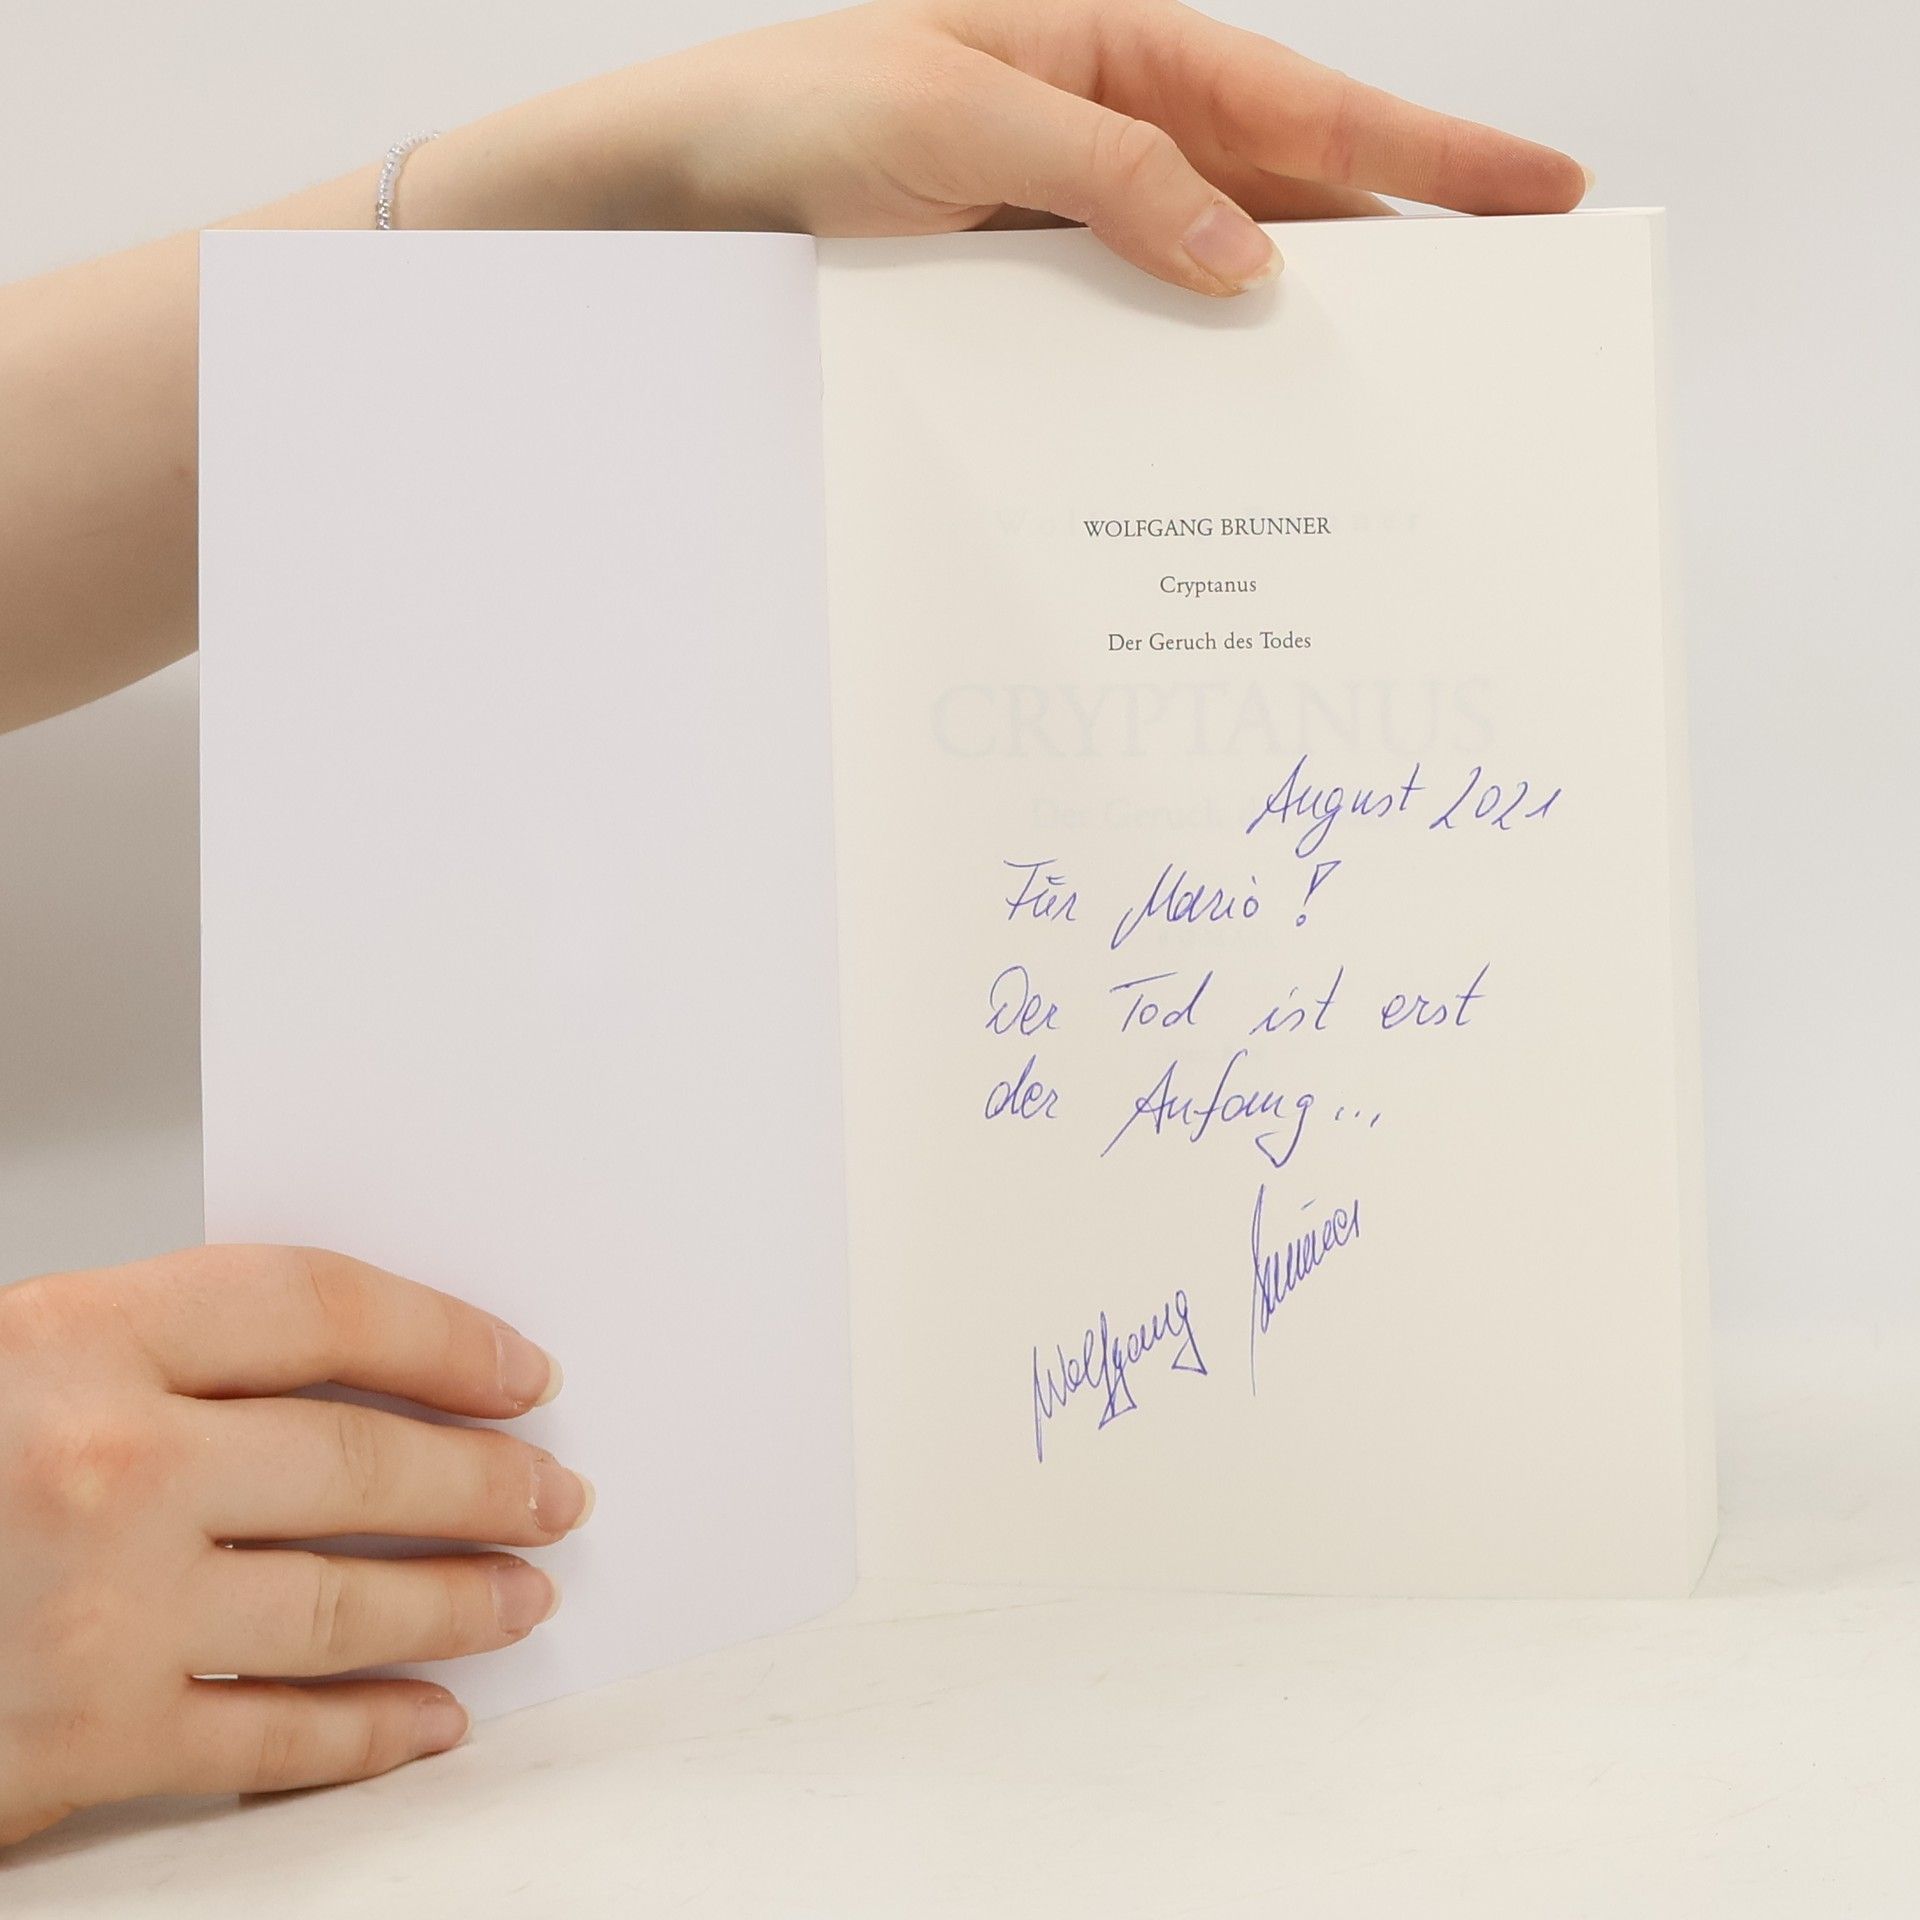 WOLFGANG BRUNNER
Cryptanus
Der Geruch des Todes
CRYPTANUS
August 2021
Für Mario!
Der Tod ist erst
der Anfang...
Wolfgang Brunner